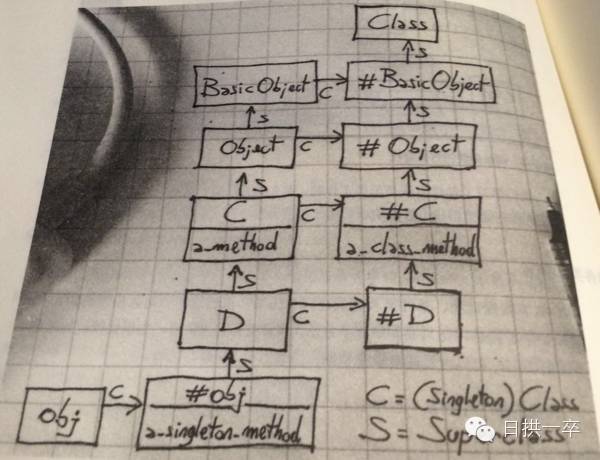 Class
S
BasicObject
C
#BasicObject
S
S
Object
C
#Object
S
S
C
a_method
C
#C
a_class_method
S
S
D
C
#D
S
obj
C
#obj
a_singleton_method
C = (Singleton) Class
S = Superclass
日拱一卒